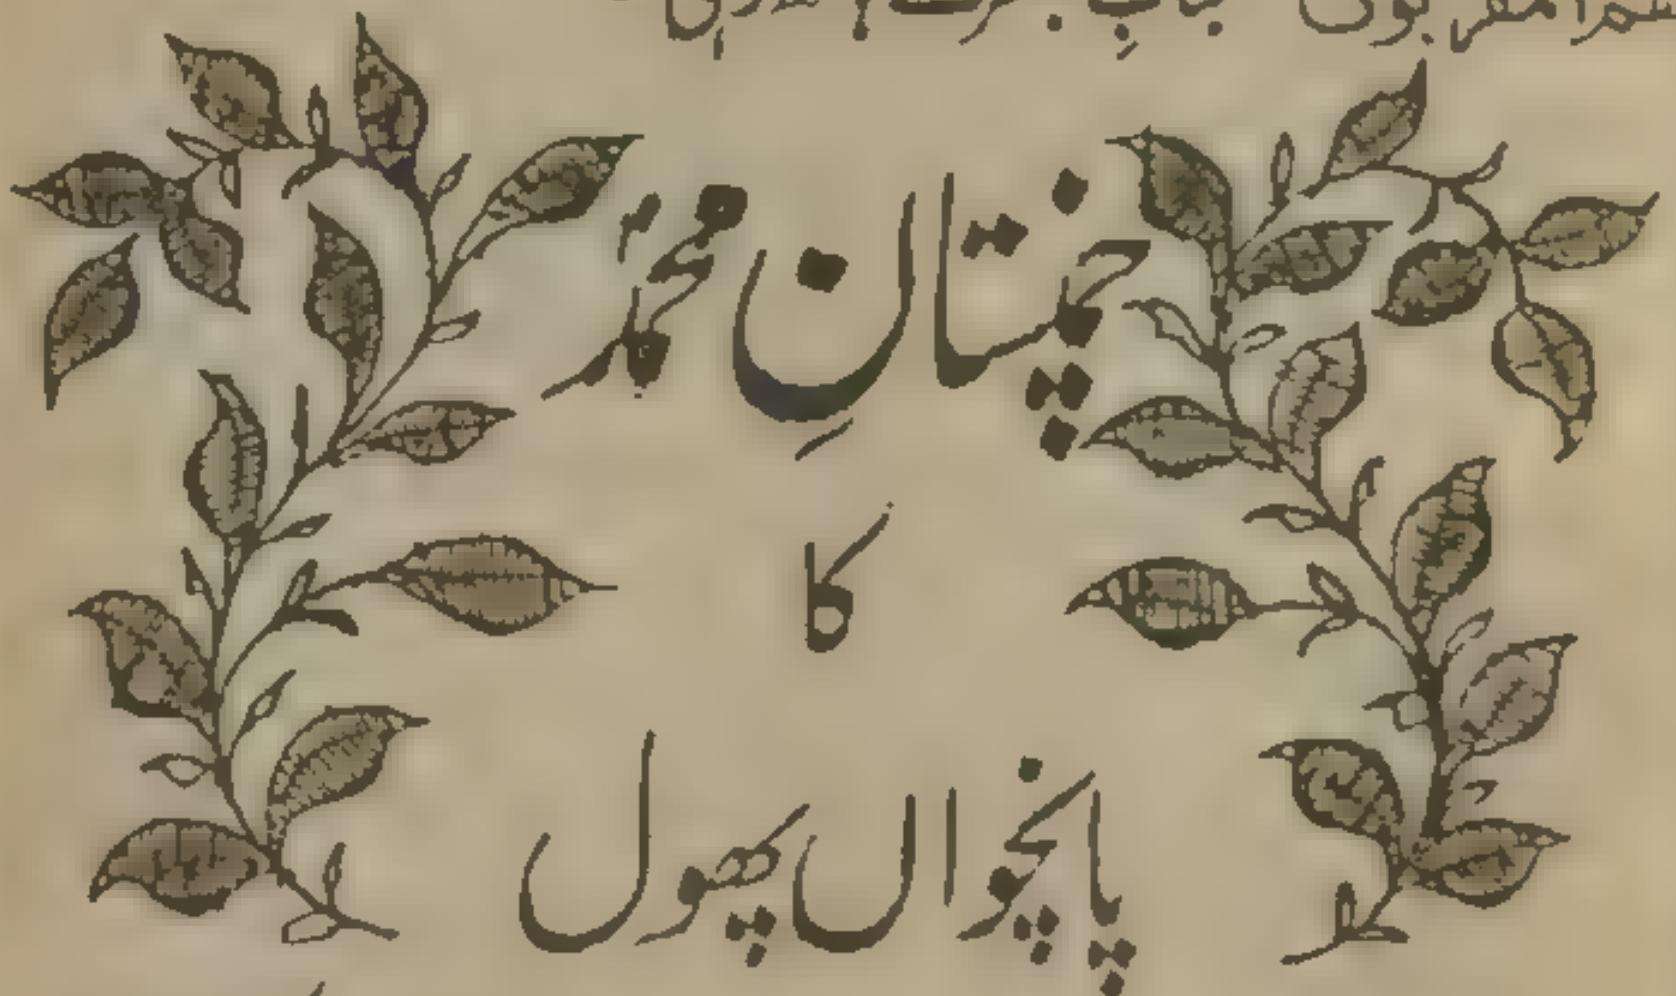 چمنستانِ محمدؐ
کا
پانچواں پھول